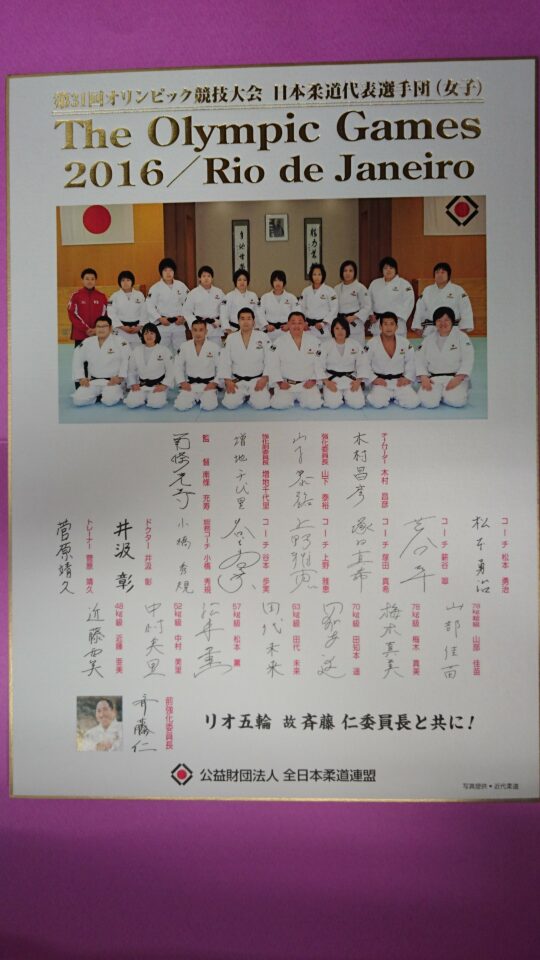 第31回オリンピック競技大会 日本柔道代表選手団(女子)
The Olympic Games
2016/Rio de Janeiro
チームリーダー 木村 昌彦
木村昌彦
強化委員長 山下 泰裕
山下泰裕
強化副委員長 増地千代里
増地千代里
監 督 南條 充寿
南條充寿
コーチ 松本 勇治
松本勇治
コーチ 薪谷 翠
コーチ 塚田 真希
塚田真希
コーチ 上野 雅恵
上野雅恵
コーチ 谷本 歩実
総務コーチ 小橋 秀規
小橋秀規
ドクター 井汲 彰
井汲彰
トレーナー 菅原 靖久
菅原靖久
78kg超級 山部 佳苗
山部佳苗
78kg級 梅木 真美
梅木真美
70kg級 田知本 遥
63kg級 田代 未来
田代未来
57kg級 松本 薫
52kg級 中村 美里
中村美里
48kg級 近藤 亜美
近藤亜美
前強化委員長
斉藤仁
リオ五輪 故 斉藤 仁委員長と共に!
公益財団法人 全日本柔道連盟
写真提供・近代柔道